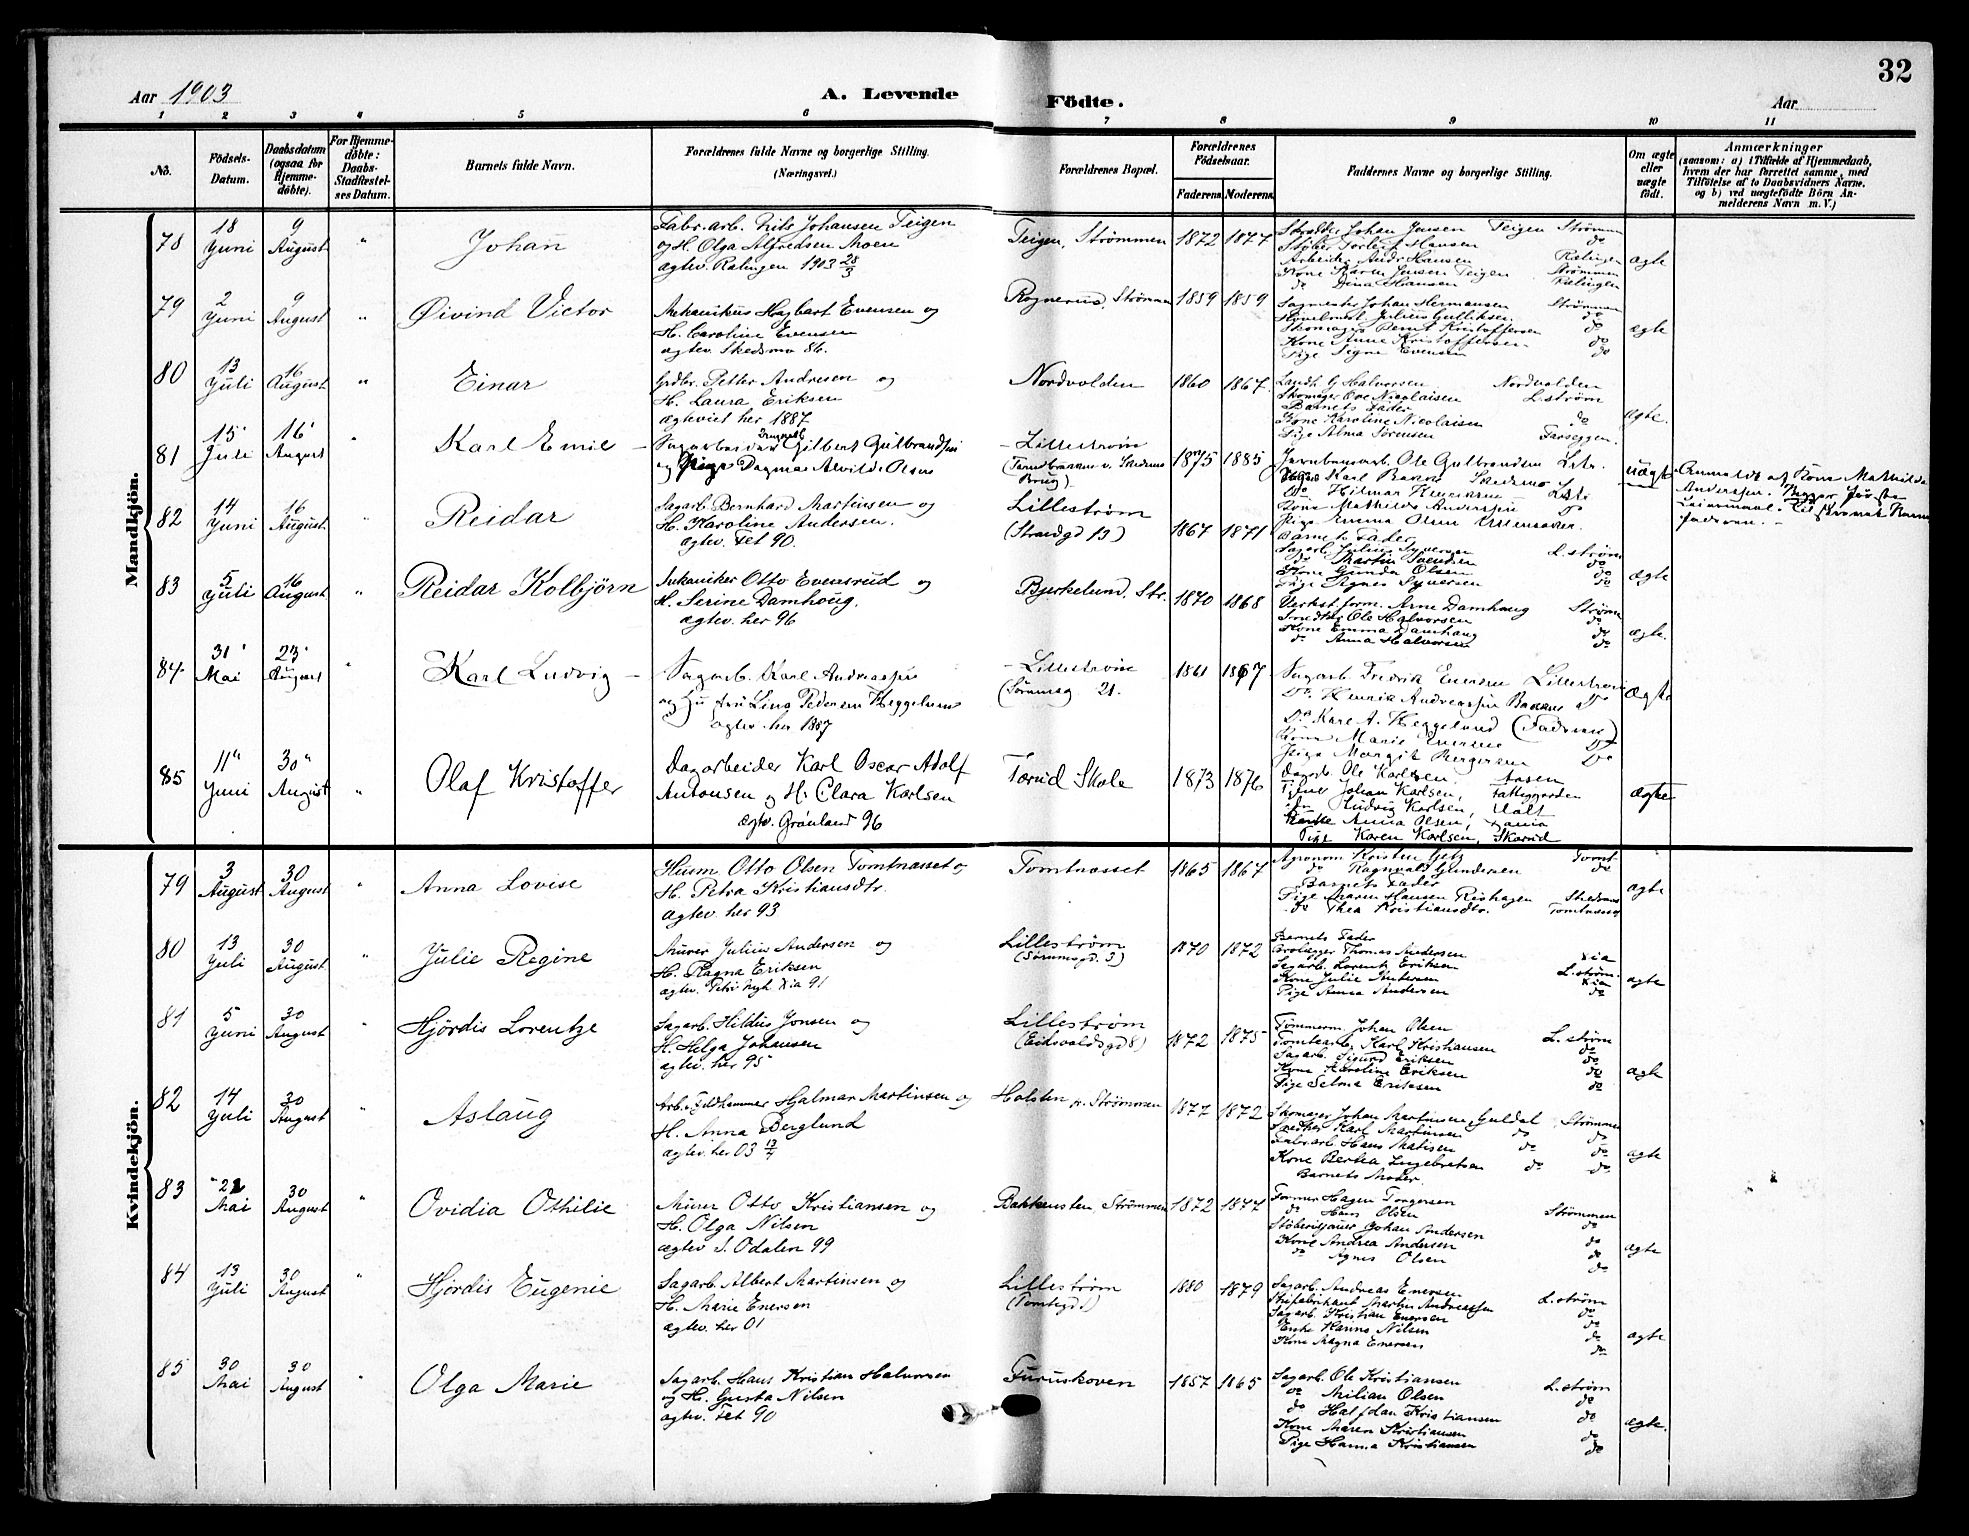 32
Aar 1903 A. Levende Födte. Aar
1 2 3 4 5 6 7 8 9 10 11
No. Födsels-Datum. Daabsdatum (ogsaa for Hjemme-döbte). For Hjemme-döbte: Daabs-Stadfæstel-ses Datum. Barnets fulde Navn. Forældrenes fulde Navne og borgerlige Stilling. (Næringsvei.) Forældrenes Bopæl. Forældrenes Födselsaar. Faderens. Moderens. Faddernes Navne og borgerlige Stilling. Om ægte eller uægte födt. Anmærkninger (saasom: a) i Tilfælde af Hjemmedaab, hvem der har forrettet samme, med Tilföielse af to Daabsvidners Navne, og b) ved uægtefödte Börn An-melderens Navn m. V.)
Mandkjön.
78 18 Juni 9 August " Johan
Fabr.arb. Nils Johansen Teigen
og H. Olga Alfredsen Moen
ægtev. Rælingen 1903 28/3
Teigen, Strømmen 1872 1877
Skrædder Johan Jensen Teigen Strømm
Støber Torleif Hansen do
Arbeider Andr Hansen Rælingen
Kone Karen Jensen Teigen Strømmen
do Dina Hansen Rælingen
ægte
79 2 Juni 9 August " Øivind Victor
Mekanikus Hagbart Evensen og
H. Caroline Evensen
ægtev. Skedsmo 86.
Rognerud, Strømmen 1859 1859
Sagmester Johan Hermansen Strømmen
Høvelmest. Julius Gulliksen do
Skomager Bernt Kristoffersen do
Kone Anne Kristoffersen do
Pige Signe Evensen do
ægte
80 13 Juli 16 August " Einar
Grdbr. Petter Andresen og
H. Laura Eriksen
ægteviet her 1887
Nordvolden 1860 1867
Landh. G Halvorsen Nordvolden
Skomager Ove Nicolaisen L.strøm
Barnets Fader
Kone Karoline Nicolaisen do
Pige Alma Sørensen Farseggen
ægte.
81 15 Juli 16 August " Karl Emil
Sagarbeider Gilbert Gulbrandsen
og Pige Dagmar Alvilde Olsen
Lillestrøm
(Tærudbakken v. Skedsmo Brug)
1875 1885
Jernbanearb. Ole Gulbrandsen L.str.
Karl Skedsmo
do Hilmar L.str
Kone Mathilde Anderssen do
Pige Emma Olsen Ullensaker.
uægte
Anmeldt af Kone Mathilde
Anderssen. Begges første
Leiermaal.
82 14 Juni 16 August " Reidar
Sagarb. Bernhard Martinsen og
H. Karoline Andersen.
ægtev. Fet 90.
Lillestrøm
(Strandgd 13) 1867 1871
Barnets Fader
Sagarb. Julius Syversen L.strøm
do Martin Svendsen do
Kone Gunda Olsen do
Pige Agnes Syversen do
ægte
83 5 Juli 16 August " Reidar Kolbjörn
Mekaniker Otto Evensrud og
H. Serine Damhoug.
ægtev. her 96
Bjerkelund, Str. 1870 1868
Verkst.form. Arne Damhaug Strømm
Smedtør Ole Halvorsen do
Kone Emma Damhaug do
do Anna Halvorsen do
ægte.
84 31 Mai 23 August " Karl Ludvig
Sagarb. Karl Andreassen
og Hustru Lina Pedersen Heggelund
ægtev. her 1887
Lillestrøm
(Sørumsg. 21. 1861 1867
Sagarb. Fredrik Enersen Lillestrøm
Do Henrik Andreassen Bakken do
Do Karl A. Heggelund (Faderen)
Kone Marie Enersen do
Pige Margit Bergersen do
ægte
85 11 Juni 30 August " Olaf Kristoffer
Dagarbeider Karl Oscar Adolf
Antonsen og H. Clara Karlsen
ægtv. Grønland 96
Tærud Skole 1873 1876
Dagarb. Ole Karlsen, Aasen
Tjener Johan Karlsen, Fattiggarden
do Ludvig Karlsen,
Enke Anna Olsen,
Pige Karen Karlsen, Skærud
ægte
Kvindekjön.
79 3 August 30 August " Anna Lovise
Husm Otto Olsen Tomtnasset og
H. Petra Kristiansdtr.
ægtev. her 93
Tomtnasset 1865 1867
Agronom Kristen Gjetz Tomt.
do Ragnvald Gundersen do
Barnets Fader
Pige Maren Hansen Rishagen Skedsmo
do Thea Kristiansdtr. Tomtnasset
ægte
80 13 Juli 30 August " Julie Regine
Murer Julius Andersen og
H. Ragna Eriksen
ægtev. Petri Kgk Xia 91
Lillestrøm
(Sørumsgd. 3) 1870 1872
Barnets Fader
Brolægger Thomas Andersen Xia
Sagarb. Lorentz Eriksen L.strøm.
Kone Julie Andersen Xia
Pige Anna Andersen do
ægte
81 5 Juni 30 August " Hjördis Lorentze
Sagarb. Hildus Jonsen og
H. Helga Johansen
ægtev. her 95
Lillestrøm
(Eidsvoldsgd 8) 1872 1875
Tømmerm. Johan Olsen L.strøm
Tomtearb. Karl Kristiansen do
Sagarb. Sigurd Eriksen do
Kone Karoline Eriksen do
Pige Selma Eriksen do
ægte
82 14 Juli 30 August " Aslaug
Arb. Fjeldhammer Hjalmar Martinsen og
H. Anna Berglund
ægtev. her 03 13/4
Holsten pr. Strømmen 1877 1872
Skomager Johan Martinsen, Guldal Strømmen
Snedker Karl Martinsen do do
Fabr.arb. Hans Matisen do do
Kone Berthea Ingebretsen do do
Barnets Moder.
ægte
83 22 Mai 30 August " Ovidia Othilie
Murer Otto Kristiansen og
H. Olga Nilsen
ægtev S. Odalen 99
Bakkensten, Strømmen 1872 1877
Former Hagen Torgersen Strømmen
do Hans Olsen do
Støberisjauer Johan Andersen do
Kone Andrea Andersen do
do Agnes Olsen do
ægte
84 13 Juli 30 August " Hjördis Eugenie
Sagarb. Albert Martinsen og
H. Marie Enersen
ægtev. her 01
Lillestrøm
(Tomtegd.) 1880 1879
Sagarb. Andreas Enersen L.strøm
Skifabrikant Martin Andreassen do
Sagarb. Kristian Enersen do
Enke Hanna Nilsen do
Kone Magna Enersen do
ægte
85 30 Mai 30 August " Olga Marie
Sagarb. Hans Kristian Halvorsen
og H. Gusta Nilsen
ægtev. Fet 90
Furuskoven 1857 1865
Sagarb. Ole Kristiansen L.strøm
do Milian Olsen do
do Halfdan Kristiansen do
Kone Maren Kristiansen do
Pige Hanna Kristiansen do
ægte.